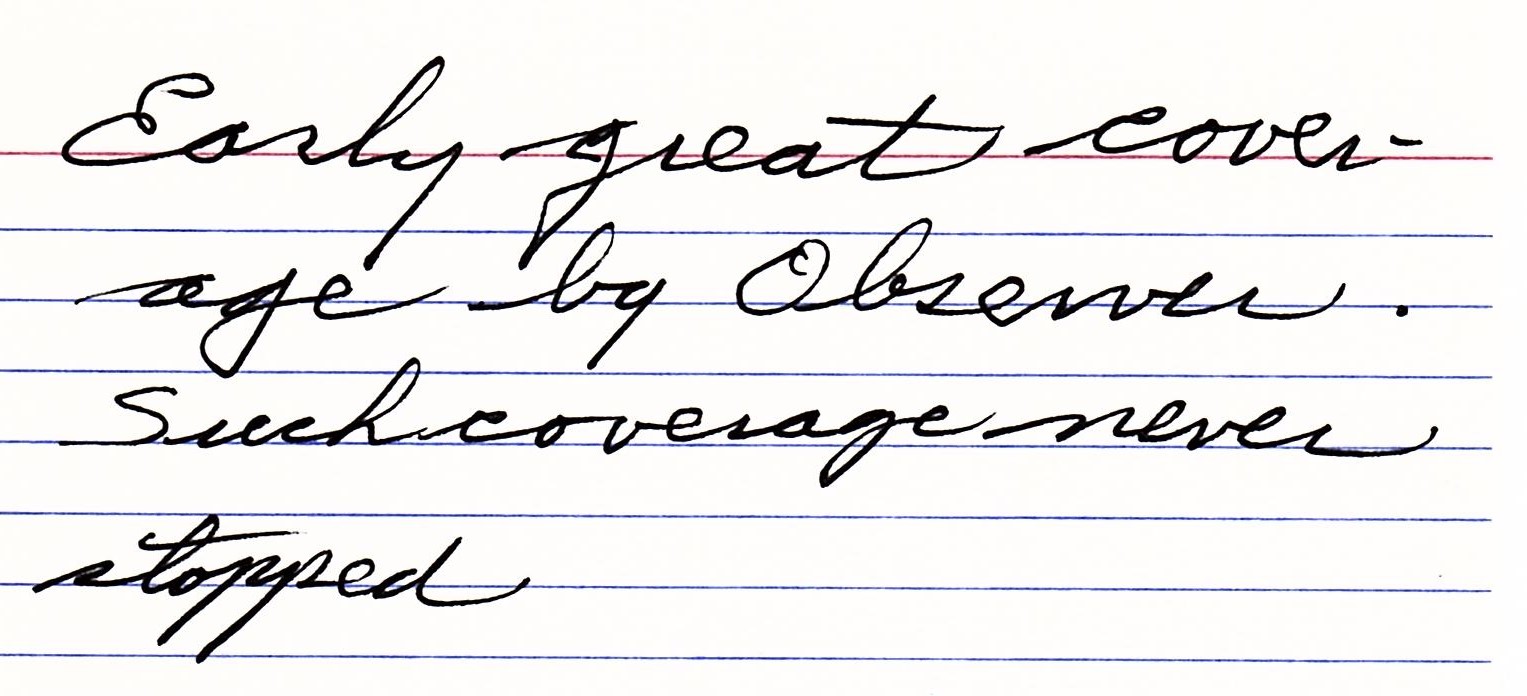 Early great cover-
age by Observer.
Such coverage never
stopped